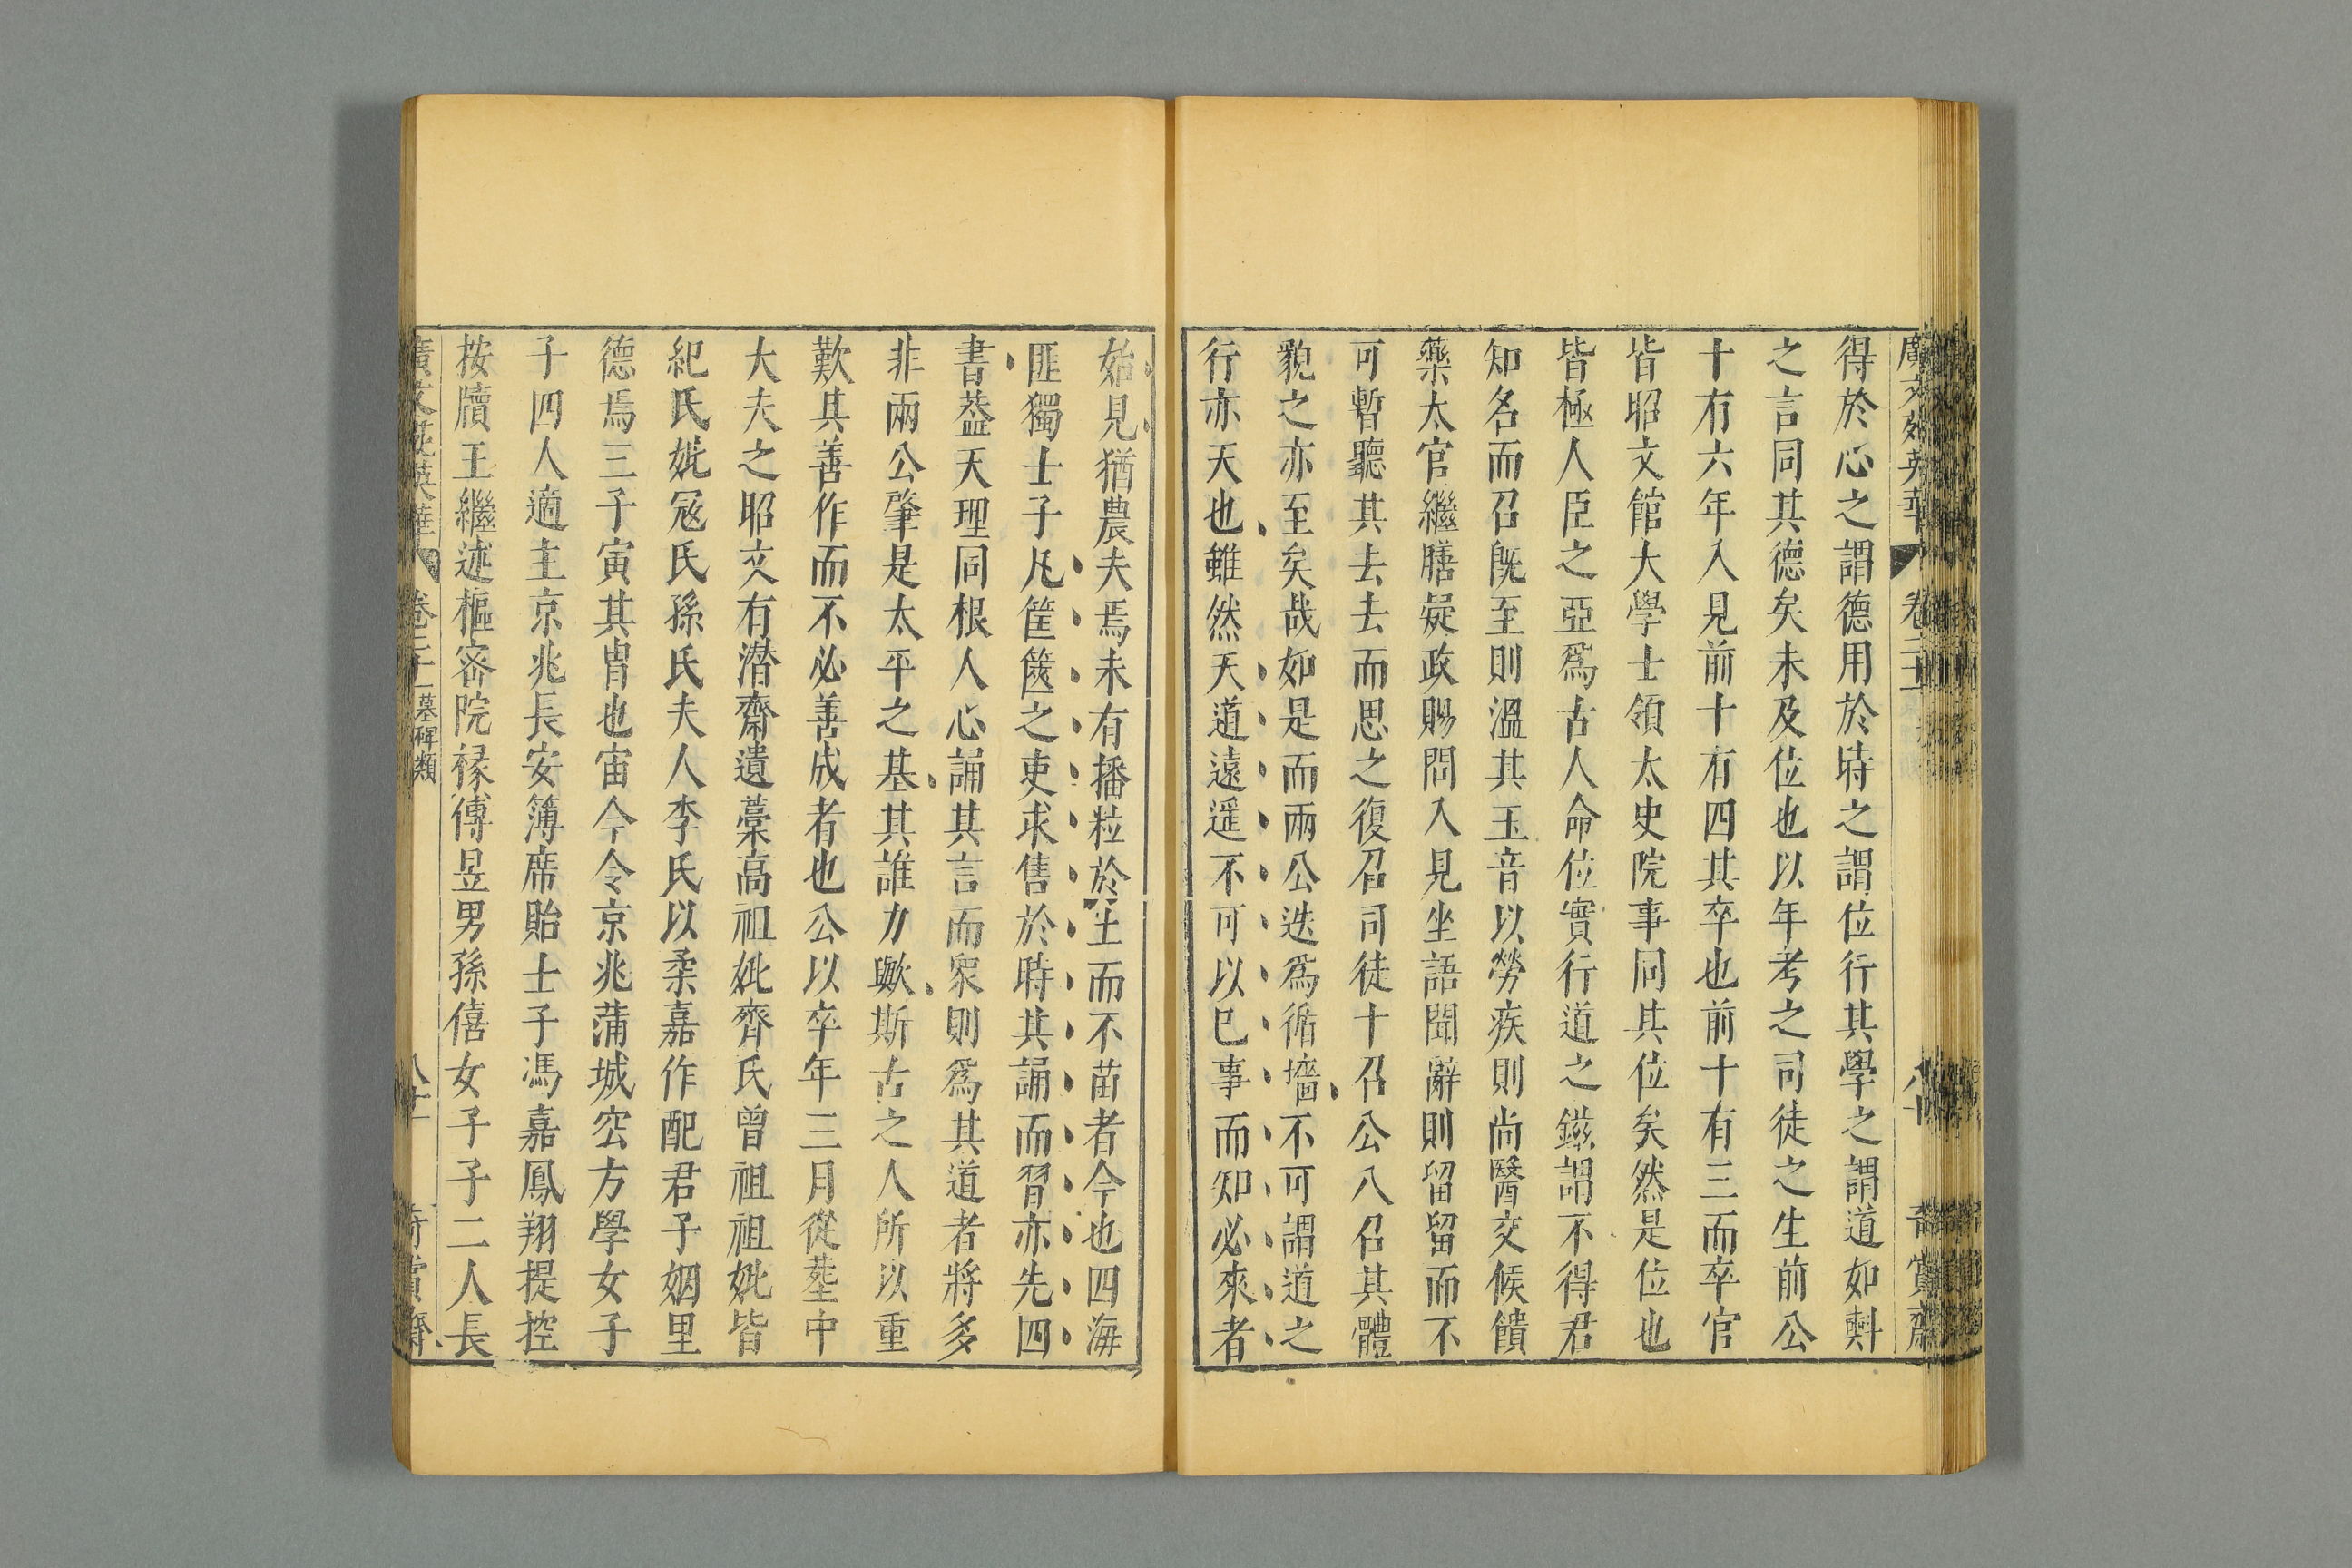 廣文苑英華 卷二十 奇賞齋
得於心之謂德用於時之謂位行其學之謂道如斯
之言同其德矣未及位也以年考之司徒之生前公
十有六年入見前十有四其卒也前十有三而卒官
皆昭文館大學士領太史院事同其位矣然是位也
皆極人臣之亞爲古人命位實行道之鎡謂不得君
知名而召旣至則溫其玉音以勞疾則尚醫交候饋
藥太官繼膳疑政賜問入見坐語聞辭則留留而不
可暫聽其去去而思之復召司徒十召公八召其體
貌之亦至矣哉如是而兩公迭爲循墻不可謂道之
行亦天也雖然天道遠遥不可以巳事而知必來者
始見猶農夫焉未有播粒於土而不苗者今也四海
匪獨士子凡筐篋之吏求售於時其誦而習亦先四
書葢天理同根人心誦其言而衆則爲其道者將多
非兩公肇是太平之基其誰力歟斯古之人所以重
歎其善作而不必善成者也公以卒年三月從塟中
大夫之昭文有潛齋遺藁高祖妣齊氏曾祖祖妣皆
紀氏妣冦氏孫氏夫人李氏以柔嘉作配君子姻里
德焉三子寅其冑也宙今令京兆蒲城宏方學女子
子四人適主京兆長安簿席貽士子馮嘉鳳翔提控
按牘王繼述樞密院椽傅昱男孫僖女子子二人長
廣文苑英華 卷二十 墓碑類 奇賞齋